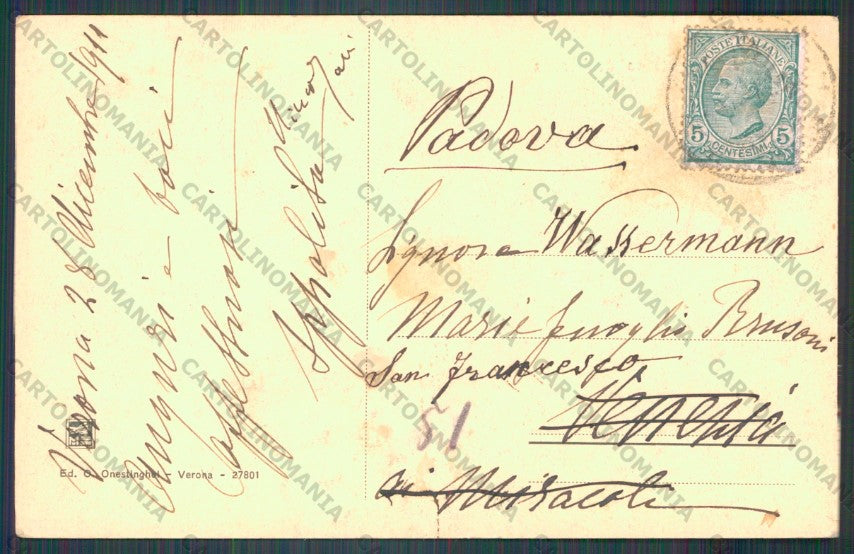 Verona 28 Dicembre 1911
Auguri e baci
affettuosi
Ippolita
Ed. G. Onestinghel - Verona - 27801
POSTE ITALIANE
5 5
CENTESIMI
Padova
Signora Wassermann
Maria Brusoni
San Francesco
51
Venezia
ai Miracoli
CARTOLINOMANIA